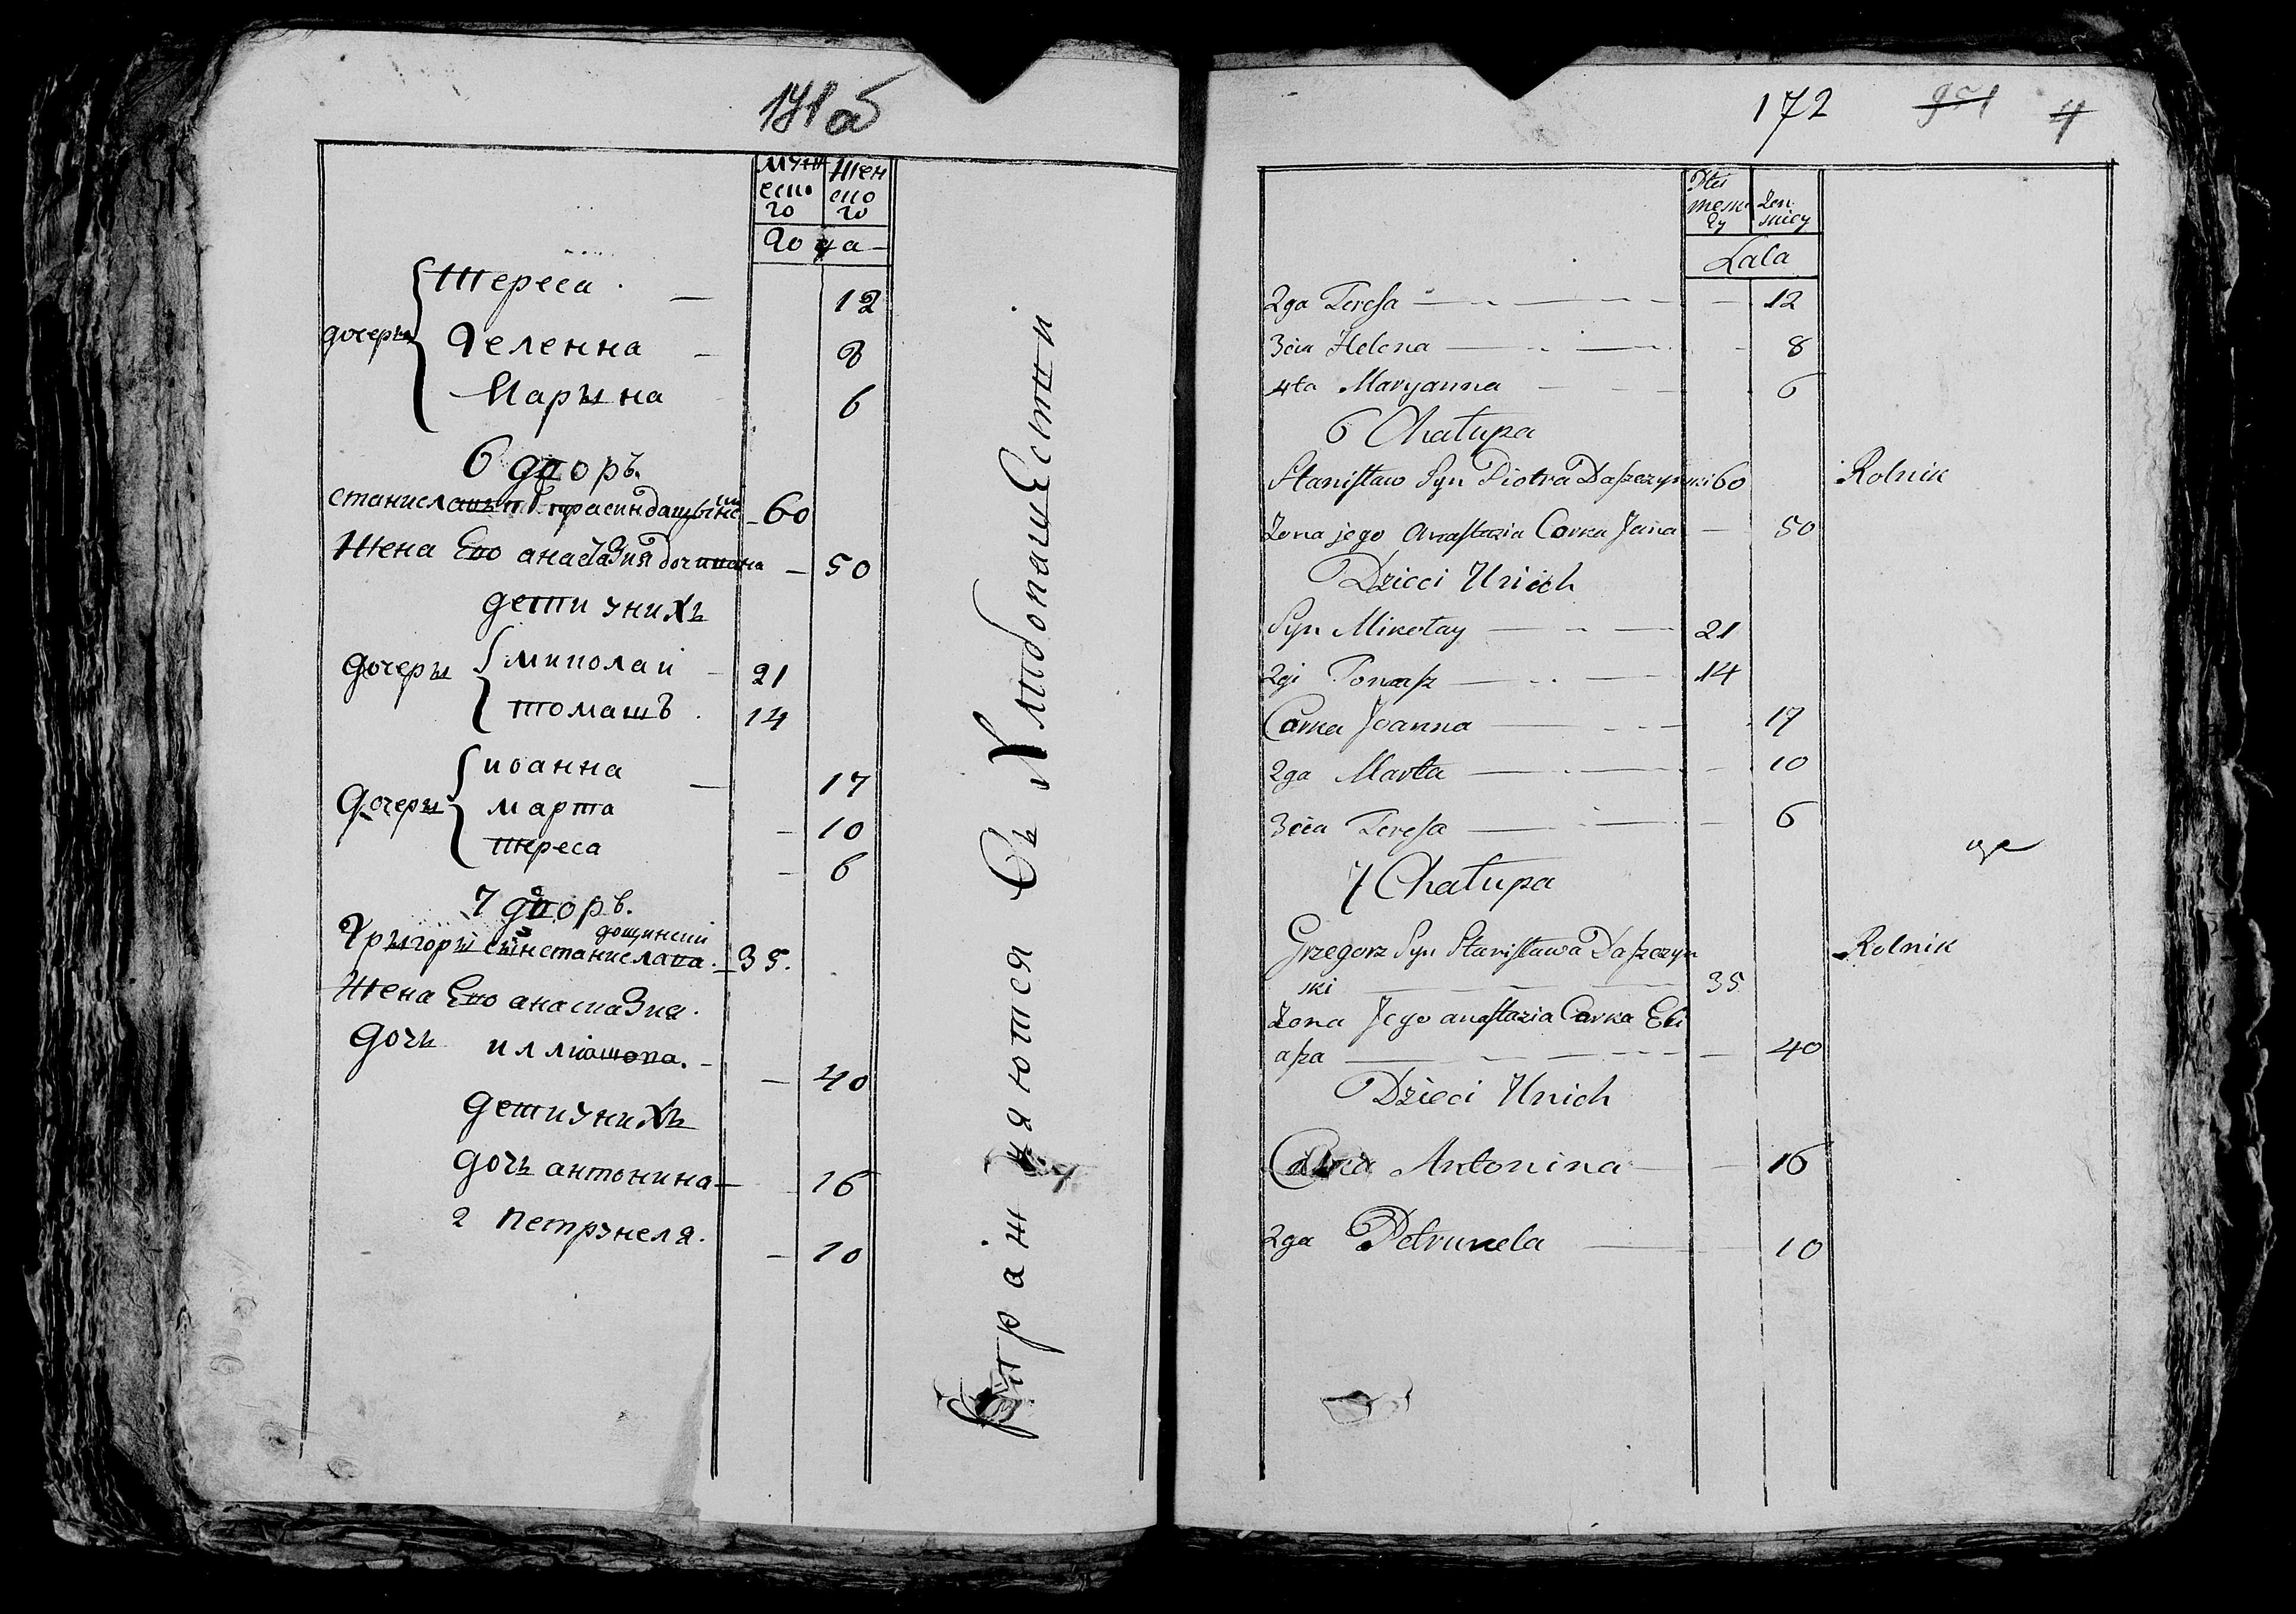 171 об
муж
еско
го
жен
ско
го
года
Тереса 12
дочеры
Геленна 8
Марына 6
6 дворъ.
станиславъ Петра сын дащынски 60
Жена Его анастазия доч ивана 50
дети унихъ
дочеры
миколай 21
томашъ 14
иоанна 17
Дочеры
марта 10
тереса 6
7 дворъ.
дощински
Грыгоры сынъ станислава 35.
Жена Его анастазия.
дочь иллиашова. 40
дети унихъ
дочь антонина 16
2 петрунеля. 10
пражняются Съ Хлибопашества
172
4
Płci
męski
ey
żen
skiey
Lata
2ga Teressa 12
3cia Helena 8
4ta Maryanna 6
6 Chałupa
Stanisław Syn Piotra Daszczynski 60 Rolnik
Żona jego Anastazia Corka Jana 50
Dzieci Unich
Syn Mikołay 21
2gi Tomasz 14
Corka Joanna 17
2ga Marta 10
3cia Teressa 6
7 Chałupa
Grzegorz Syn Stanisława Daszczyn Rolnik
ski 35
Żona Jego anastazia Corka Eli
asza 40
Dzieci Unich
Corka Antonina 16
2ga Petrunela 10